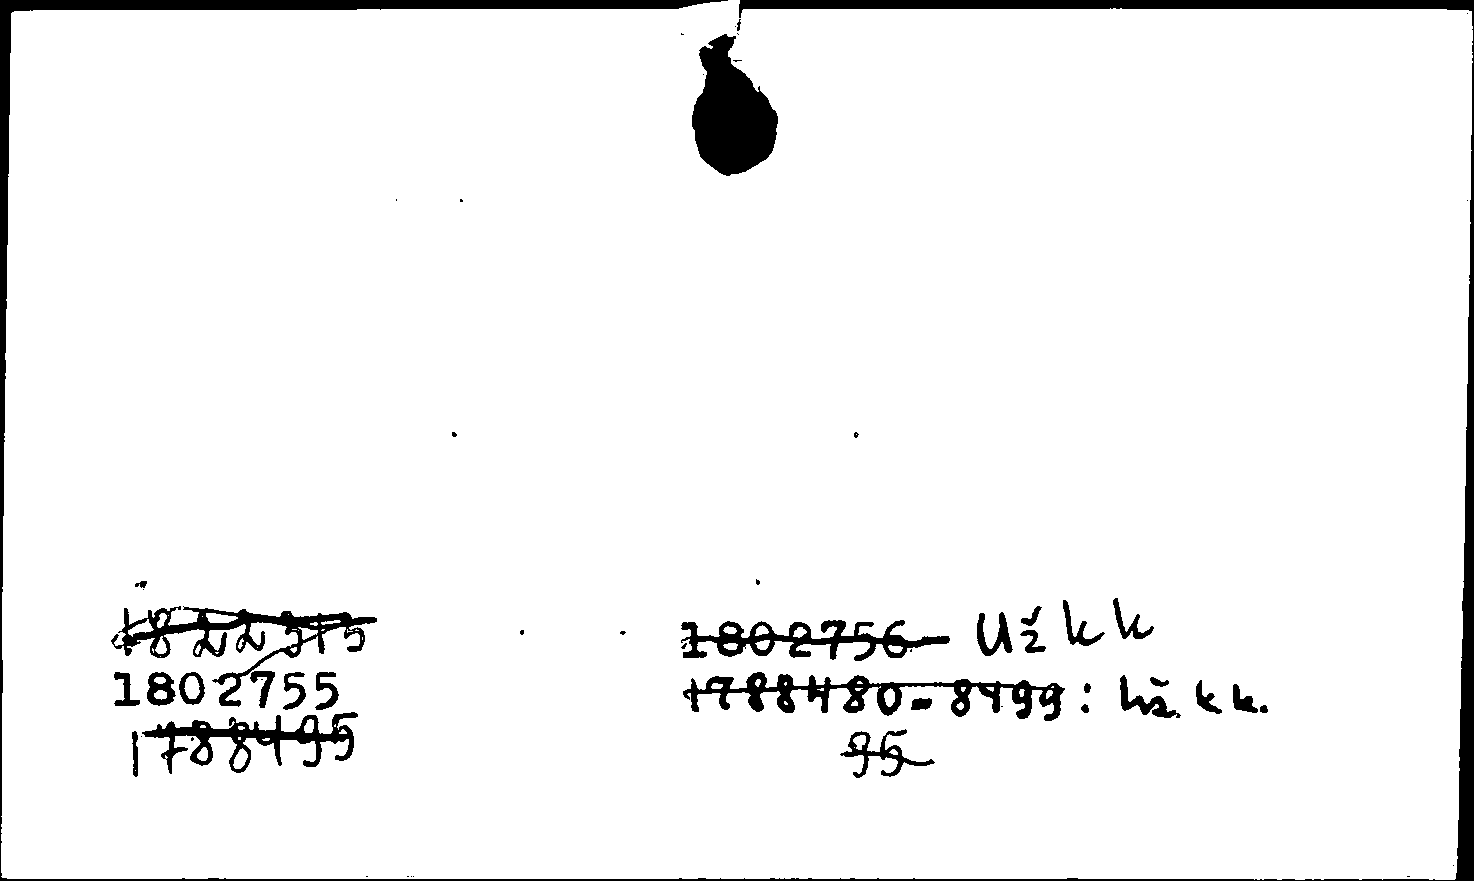 1822315
1802755
1788495
1802756 Už k k
1788480-8499: Už k k.
95